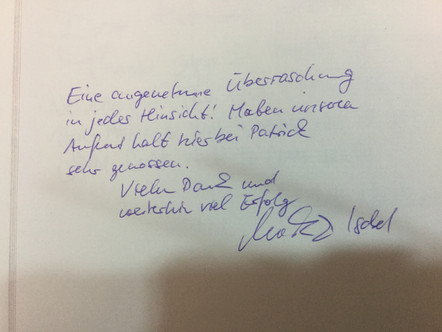 Eine angenehme Überraschung
in jeder Hinsicht! Haben unseren
Aufenthalt hier bei Patrick
sehr genossen.
Vielen Dank und
weiterhin viel Erfolg
Isabel